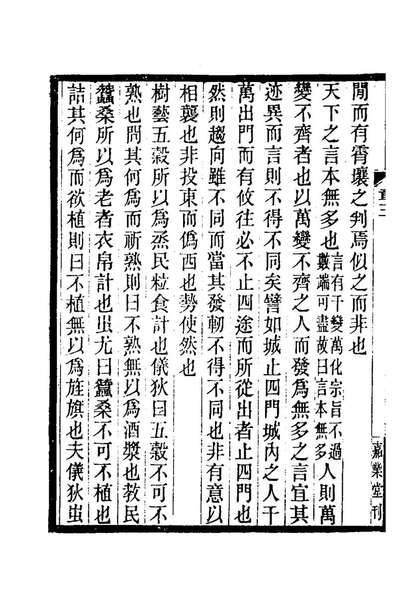 嘉業堂刊
閒而有霄壤之判焉似之而非也
天下之言本無多也言有千變萬化宗旨不過數端可盡故曰言本無多人則萬
變不齊者也以萬變不齊之人而發爲無多之言宜其
迹異而言則不得不同矣譬如城止四門城內之人千
萬出門而有攸往必不止四途而所從出者止四門也
然則趨向雖不同而當其發軔不得不同也非有意以
相襲也非投東而僞西也勢使然也
樹藝五穀所以爲烝民粒食計也儀狄曰五穀不可不
熟也問其何爲而祈熟則曰不熟無以爲酒漿也敎民
蠶桑所以爲老者衣帛計也蚩尤曰蠶桑不可不植也
詰其何爲而欲植則曰不植無以爲旌旗也夫儀狄蚩